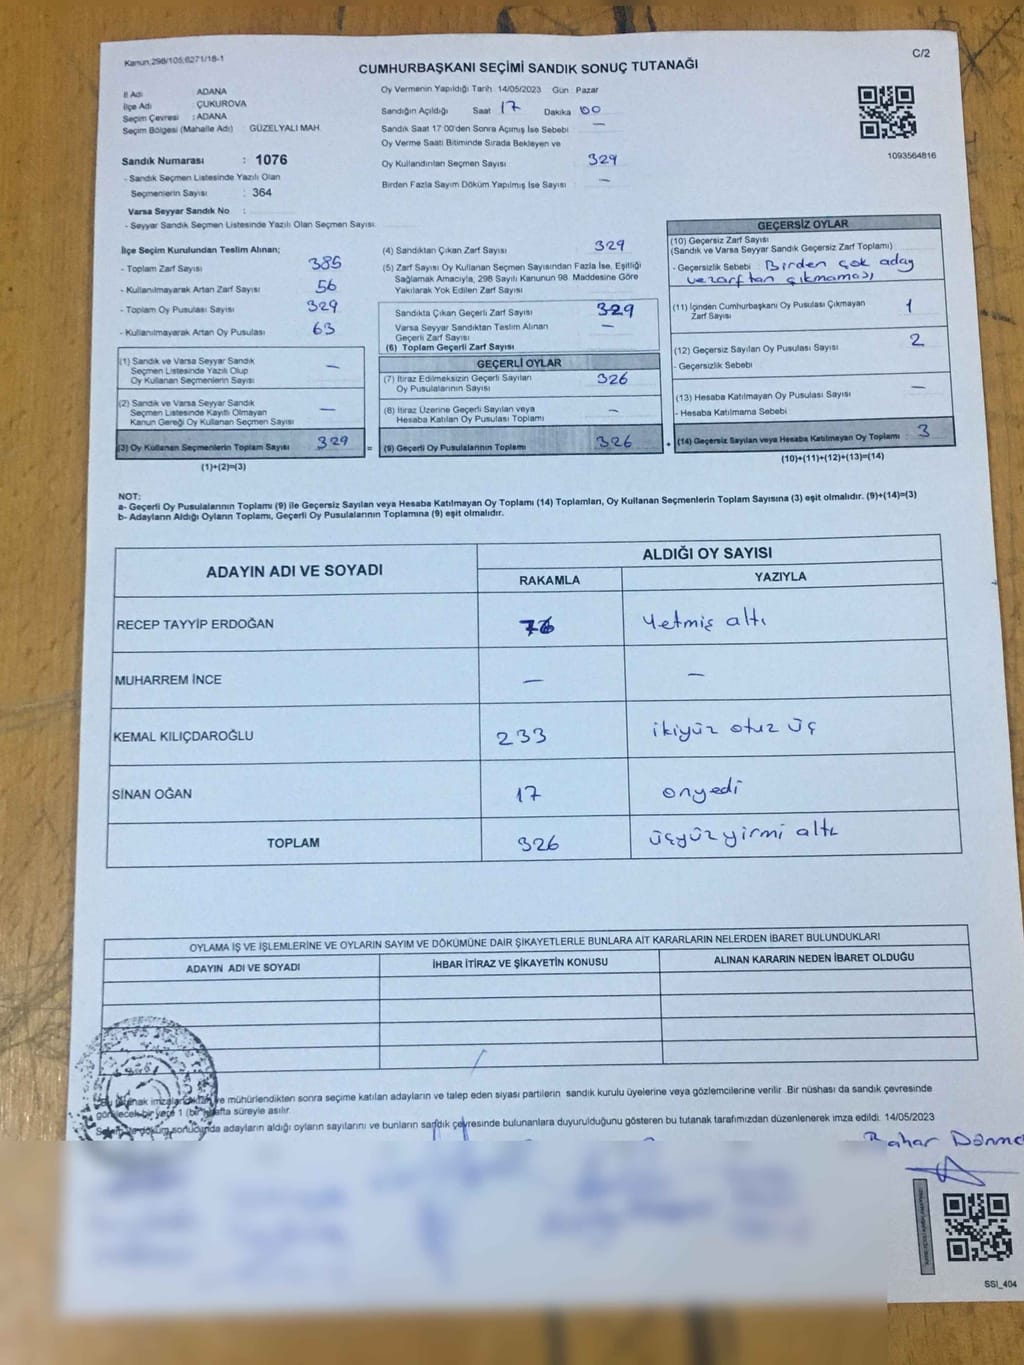 Kanun.298/105,6271/18-1
C/2
CUMHURBAŞKANI SEÇİMİ SANDIK SONUÇ TUTANAĞI
İl Adı ADANA
İlçe Adı : ÇUKUROVA
Seçim Çevresi : ADANA
Seçim Bölgesi (Mahalle Adı) GÜZELYALI MAH.
Sandık Numarası : 1076
- Sandık Seçmen Listesinde Yazılı Olan
Seçmenlerin Sayısı : 364
Varsa Seyyar Sandık No :
- Seyyar Sandık Seçmen Listesinde Yazılı Olan Seçmen Sayısı:
Oy Vermenin Yapıldığı Tarih 14/05/2023 Gün Pazar
Sandığın Açıldığı Saat 17 Dakika 00
Sandık Saat 17:00'den Sonra Açımış İse Sebebi —
Oy Verme Saati Bitiminde Sırada Bekleyen ve
Oy Kullandırılan Seçmen Sayısı 329
Birden Fazla Sayım Döküm Yapılmış İse Sayısı : —
1093564816
İlçe Seçim Kurulundan Teslim Alınan;
- Toplam Zarf Sayısı 385
- Kullanılmayarak Artan Zarf Sayısı 56
- Toplam Oy Pusulası Sayısı 329
- Kullanılmayarak Artan Oy Pusulası 63
(1) Sandık ve Varsa Seyyar Sandık
Seçmen Listesinde Yazılı Olup
Oy Kullanan Seçmenlerin Sayısı —
(2) Sandık ve Varsa Seyyar Sandık
Seçmen Listesinde Kayıtlı Olmayan
Kanun Gereği Oy Kullanan Seçmen Sayısı —
(3) Oy Kullanan Seçmenlerin Toplam Sayısı 329 =
(1)+(2)=(3)
(4) Sandıktan Çıkan Zarf Sayısı 329
(5) Zarf Sayısı Oy Kullanan Seçmen Sayısından Fazla İse, Eşitliği
Sağlamak Amacıyla, 298 Sayılı Kanunun 98. Maddesine Göre
Yakılarak Yok Edilen Zarf Sayısı
Sandıkta Çıkan Geçerli Zarf Sayısı 329
Varsa Seyyar Sandıktan Teslim Alınan
Geçerli Zarf Sayısı —
(6) Toplam Geçerli Zarf Sayısı
GEÇERLİ OYLAR
(7) İtiraz Edilmeksizin Geçerli Sayılan
Oy Pusulalarının Sayısı 326
(8) İtiraz Üzerine Geçerli Sayılan veya
Hesaba Katılan Oy Pusulası Toplamı —
(9) Geçerli Oy Pusulalarının Toplamı 326 +
GEÇERSİZ OYLAR
(10) Geçersiz Zarf Sayısı
(Sandık ve Varsa Seyyar Sandık Geçersiz Zarf Toplamı)
- Geçersizlik Sebebi Birden çok aday
ve zarftan çıkmaması
(11) İçinden Cumhurbaşkanı Oy Pusulası Çıkmayan
Zarf Sayısı 1
(12) Geçersiz Sayılan Oy Pusulası Sayısı 2
- Geçersizlik Sebebi
(13) Hesaba Katılmayan Oy Pusulası Sayısı —
- Hesaba Katılmama Sebebi
(14) Geçersiz Sayılan veya Hesaba Katılmayan Oy Toplamı 3
(10)+(11)+(12)+(13)=(14)
NOT:
a- Geçerli Oy Pusulalarının Toplamı (9) ile Geçersiz Sayılan veya Hesaba Katılmayan Oy Toplamı (14) Toplamları, Oy Kullanan Seçmenlerin Toplam Sayısına (3) eşit olmalıdır. (9)+(14)=(3)
b- Adayların Aldığı Oyların Toplamı, Geçerli Oy Pusulalarının Toplamına (9) eşit olmalıdır.
ADAYIN ADI VE SOYADI
ALDIĞI OY SAYISI
RAKAMLA YAZIYLA
RECEP TAYYİP ERDOĞAN 76 Yetmiş altı
MUHARREM İNCE — —
KEMAL KILIÇDAROĞLU 233 ikiyüz otuz üç
SİNAN OĞAN 17 onyedi
TOPLAM 326 üçyüz yirmi altı
OYLAMA İŞ VE İŞLEMLERİNE VE OYLARIN SAYIM VE DÖKÜMÜNE DAİR ŞİKAYETLERLE BUNLARA AİT KARARLARIN NELERDEN İBARET BULUNDUKLARI
ADAYIN ADI VE SOYADI İHBAR İTİRAZ VE ŞİKAYETİN KONUSU ALINAN KARARIN NEDEN İBARET OLDUĞU
ve mühürlendikten sonra seçime katılan adayların ve talep eden siyasi partilerin sandık kurulu üyelerine veya gözlemcilerine verilir. Bir nüshası da sandık çevresinde
görülecek bir yere 1 (bir) hafta süreyle asılır.
sonucunda adayların aldığı oyların sayılarını ve bunların sandık çevresinde bulunanlara duyurulduğunu gösteren bu tutanak tarafımızdan düzenlenerek imza edildi. 14/05/2023
Bahar
SSI_404